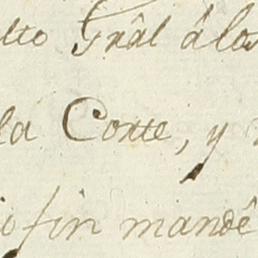 lto Grâl â las
la Corte, y
fin mandê